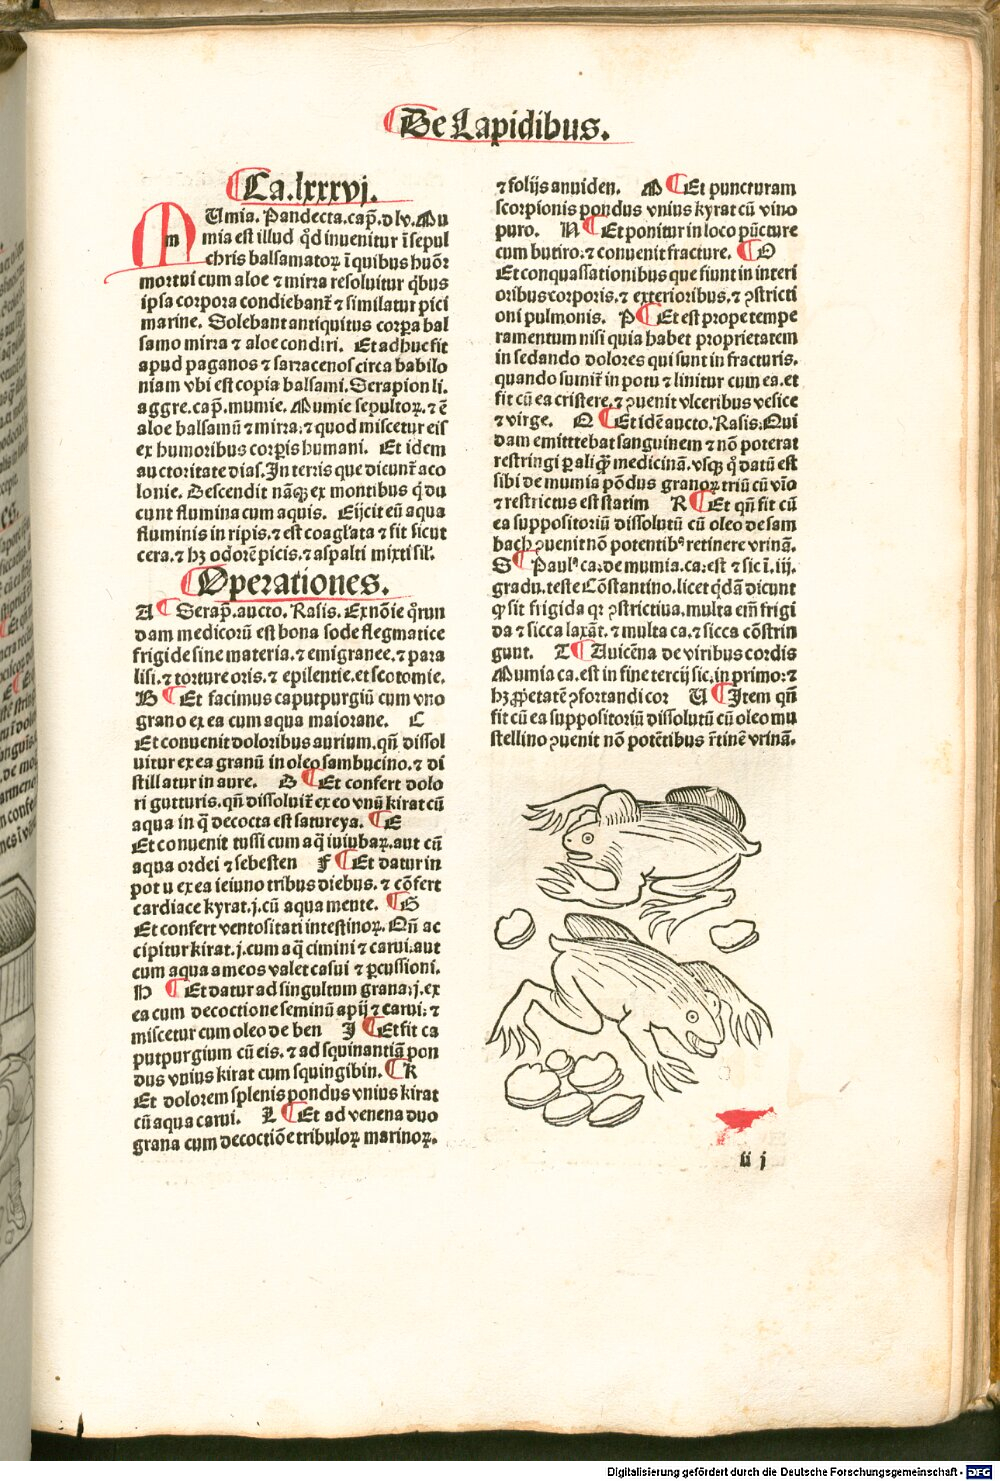 De Lapidibus.
Ca. lxxxvj.
MUmia. Pandecta. cap̄. dlv. Mu
mia est illud qd̄ inuenitur ī sepul
chris balsamatoꝝ ī quibus huōꝝ
mortui cum aloe ⁊ mirra resoluitur qb̄us
ipsa corpora condiebant̄ ⁊ similatur pici
marine. Solebant antiquitus corpa bal
samo mirra ⁊ aloe condiri. Et adhuc fit
apud paganos ⁊ sarracenos circa babilo
niam vbi est copia balsami. Serapion li.
aggre. cap̄. mumie. Mumie sepultoꝝ. ⁊ ē
aloe balsamū ⁊ mirra; ⁊ quod miscetur eis
ex humoribus corpis humani. Et idem
auctoritate dias. In terris que dicunt̄ aco
lonie. Descendit nāqꝫ ex montibus q̄ du
cunt flumina cum aquis. Eijcit eū aqua
fluminis in ripis. ⁊ est coaglata ⁊ fit sicut
cera. ⁊ hꝫ odorē picis. ⁊ aspalti mixti sil.
Operationes.
A Serap̄. aucto. Rasis. Ex nōie qrun
dam medicorū est bona sode flegmatice
frigide sine materia. ⁊ emigranee. ⁊ para
lisi. ⁊ torture oris. ⁊ epilentie. et scotomie.
B Et facimus caputpurgiū cum vno
grano ex ea cum aqua maiorane. C
Et conuenit doloribus aurium. qn̄ dissol
uitur ex ea granū in oleo sambucino. ⁊ di
stillatur in aure. D Et confert dolo
ri gutturis. qn̄ dissoluit̄ ex eo vnū kirat cū
aqua in q̄ decocta est satureya. E
Et conuenit tussi cum aq̄ iuiubaꝝ. aut cū
aqua ordei ⁊ sebesten F Et datur in
potu ex ea ieiuno tribus diebus. ⁊ cōfert
cardiace kyrat. j. cū aqua mente. G
Et confert ventositati intestinoꝝ. Qn̄ ac
cipitur kirat. j. cum aq̄ cimini ⁊ carui. aut
cum aqua ameos valet casui ⁊ pcussioni.
H Et datur ad singultum grana ij. ex
ea cum decoctione seminū apij ⁊ carui: ⁊
miscetur cum oleo de ben I Et fit ca
putpurgium cū eis. ⁊ ad squinantiā pon
dus vnius kirat cum squingibin. K
Et dolorem splenis pondus vnius kirat
cū aqua carui. L Et ad venena duo
grana cum decoctiōe tribuloꝝ marinoꝝ.
⁊ folijs anuiden. M Et puncturam
scorpionis pondus vnius kyrat cū vino
puro. N Et ponitur in loco pūcture
cum butiro: ⁊ conuenit fracture. O
Et conquassationibus que fiunt in interi
oribus corporis. ⁊ exterioribus. ⁊ ꝯstricti
oni pulmonis. P Et est prope tempe
ramentum nisi quia habet proprietatem
in sedando dolores qui sunt in fracturis.
quando sumit̄ in potu ⁊ linitur cum ea. et
fit cū ea cristere. ⁊ ꝯuenit vlceribus vesice
⁊ virge. Q Et idē aucto. Rasis. Qui
dam emitttebat sanguinem ⁊ nō poterat
restringi p aliqꝫ medicinā. vsqꝫ qꝫ datū est
sibi de mumia pōdus granoꝝ triū cū vīo
⁊ restrictus est statim R Et qn̄ fit cū
ea suppositoriū dissolutū cū oleo de sam
bach ꝯuenit nō potentibꝰ retinere vrinā.
S Paulꝰ ca. de mumia. ca. est ⁊ sic ī. iij.
gradu. teste Cōstantino. licet qd̄dā dicunt
ꝙ sit frigida qꝛ ꝯstrictiua. multa em̄ frigi
da ⁊ sicca laxāt. ⁊ multa ca. ⁊ sicca cōstrin
gunt. T Auicēna de viribus cordis
Mumia ca. est in fine tercij sic. in primo: ⁊
hꝫ ꝓpetatē ꝯfortandi cor U Item qn̄
fit cū ea suppositoriū dissolutū cū oleo mu
stellino ꝯuenit nō potētibus r̄tinē vrinā.
ii j
Digitalisierung gefördert durch die Deutsche Forschungsgemeinschaft - DFG